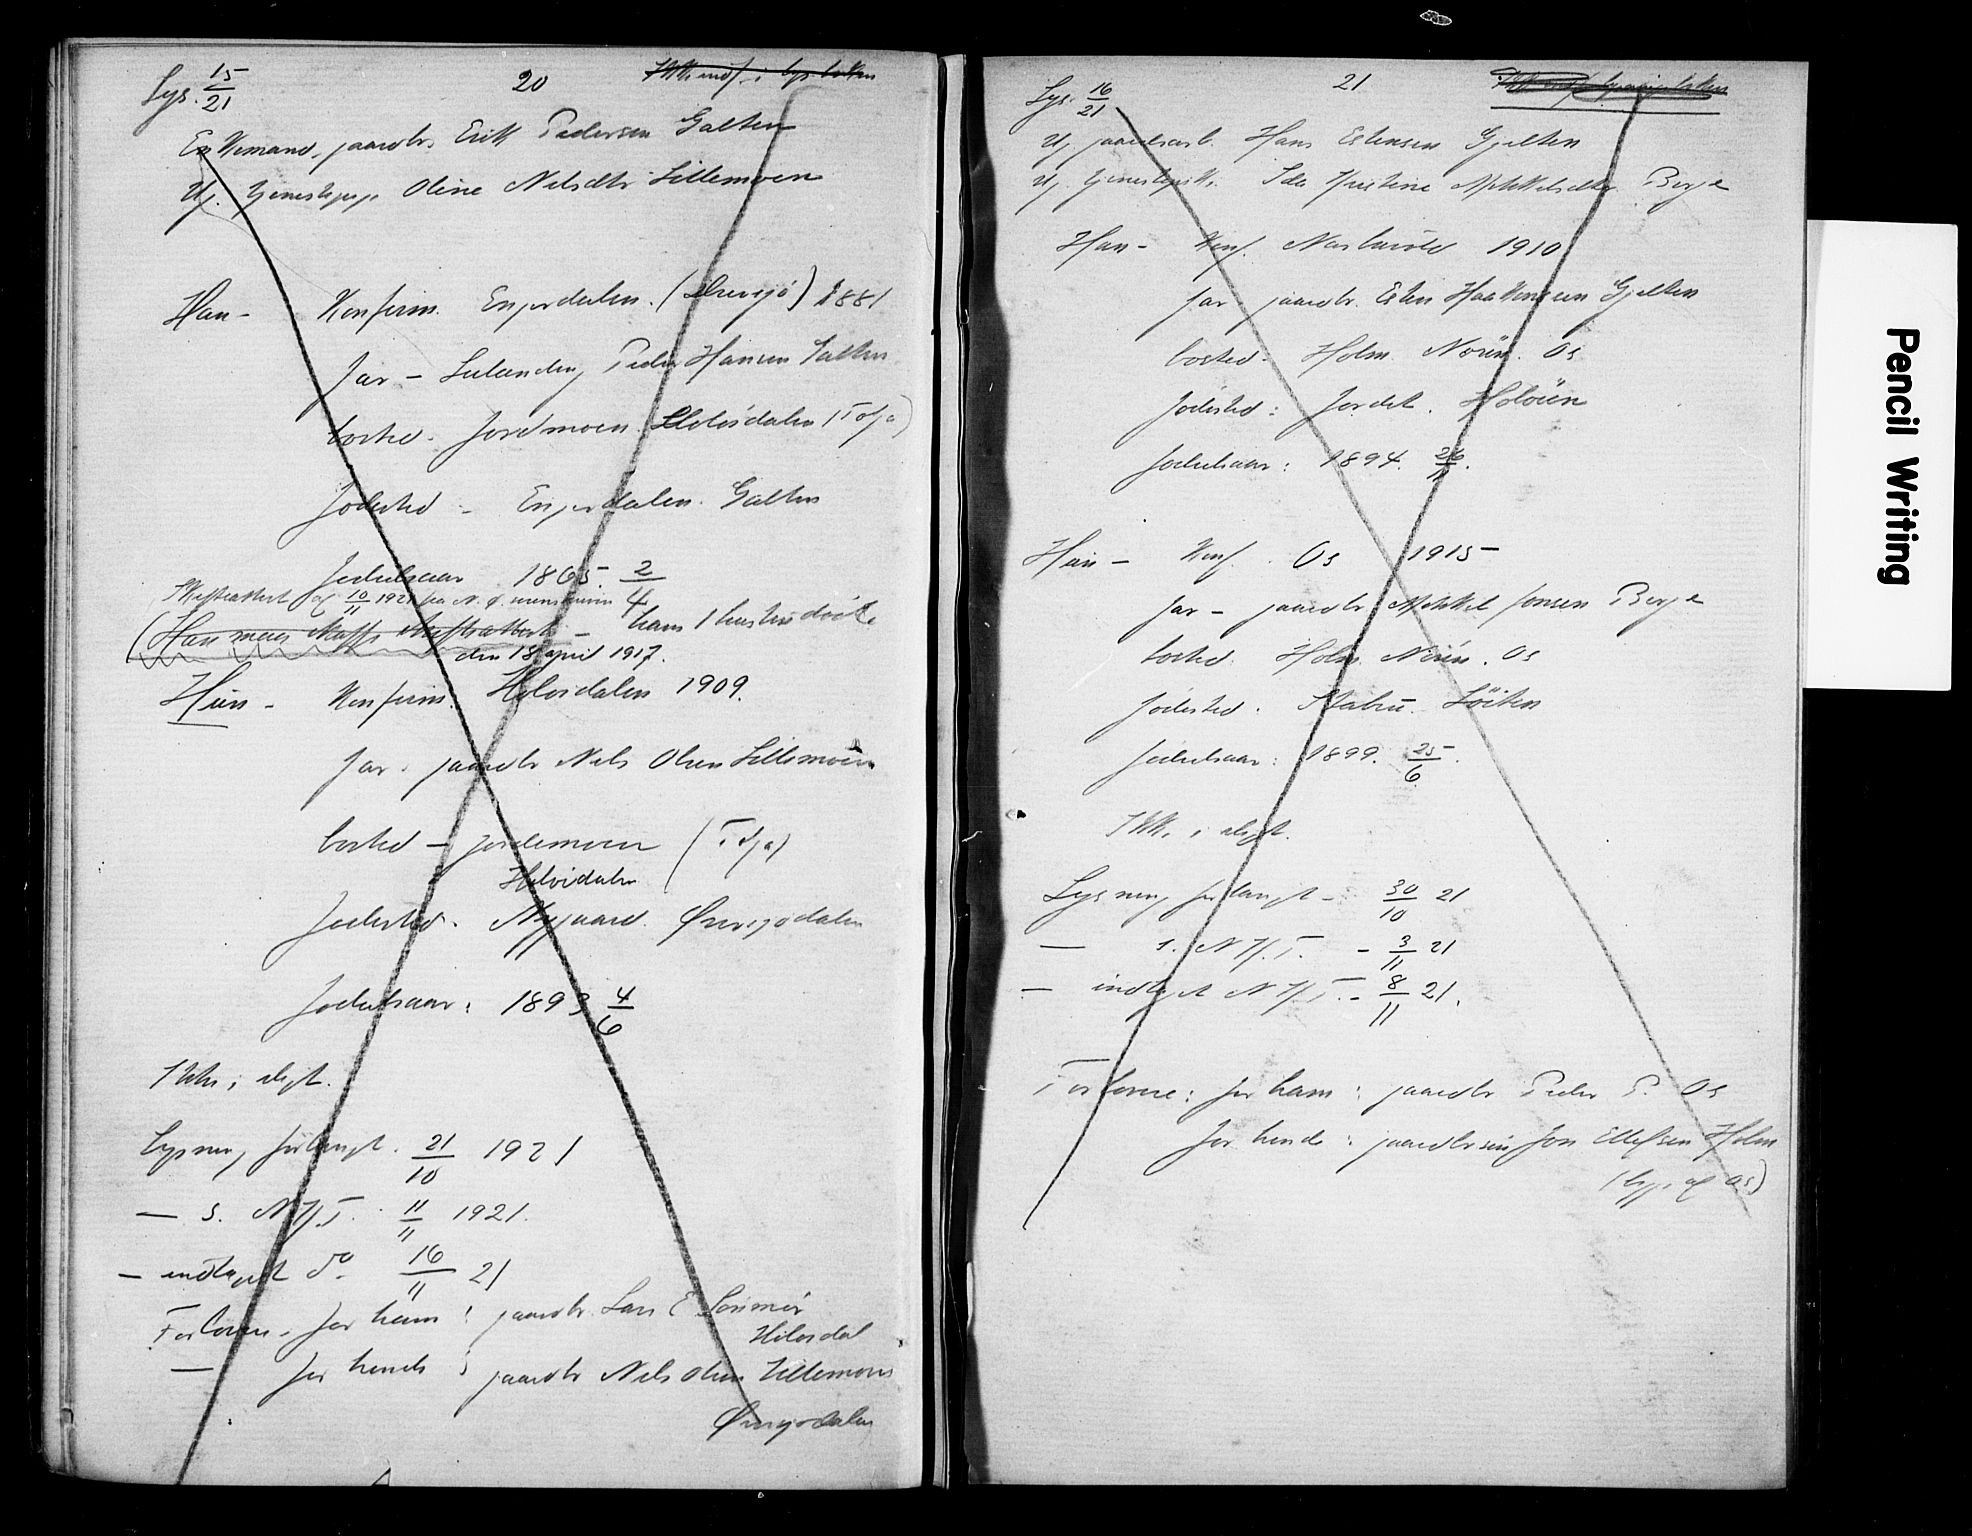 Lys. 15/21
20
Ikke indf. i lys. boken
Enkemand, gaardbr. Erik Pedersen Galten
Ug. tjenestepige Oline Nilsdtr Lillemoen
Han - Konfirm. Engerdalen. (Drevsjö) 1881
Far - Peder Hansen Galten
bosted - Jordmoen. Holöidalen (Tolga)
Födested - Engerdalen. Galten
Födselsaar 1865. 2/4
Skifteattest af 10/11 1921 fra N. Ø.
(Han maa skaffe skifteattest - hans 1 hustru döde
den 18 april 1917.
Hun - Konfirm. Holöidalen 1909.
Far: gaardbr Nils Olsen Lillemoen
bosted - Jordmoen (Tolga)
Holöidalen
Födested. Nygaard. Øversjödalen
Födselsaar: 1893 4/6
Ikke i slegt.
Lysning forlangt. 21/10 1921
— s. N.Ø.T. 11/11 1921.
— indtaget do. 16/11 21
Forlovere - for ham: gaardbr. Lars E.
Holöidal
— for hende: gaardbr Nils Olsen Lillemoen
Øversjödalen
Lys. 16/21
21
Ug. gaardsarb. Hans Estensen Gjelten
Ug. tjenestepike. Ida Kristine Mikkelsdtr. Berge
Han - Konf. 1910
Far - gaardbr. Esten Haakonsen Gjelten
bosted - Holm. Nören. Os
Födested: Jordet. Holöien
Födselsaar: 1894. 26/11.
Hun - Konf. Os 1915
Far - gaardbr Mikkel Jonsen Berge
bosted. Holm. Nören. Os
Födested. Stabu. Löiten
Födselsaar: 1899. 25/6.
Ikke i slegt.
Lysning forlangt - 30/10 21
— s. N.Ø.T. - 3/11 21
— indtaget N.Ø.T. - 8/11 21.
Forlovere: for ham: gaardbr Peder P. Os
for hende: gaardbrsön Jon Ellefsen Holm
(begge af Os)
Pencil Writing